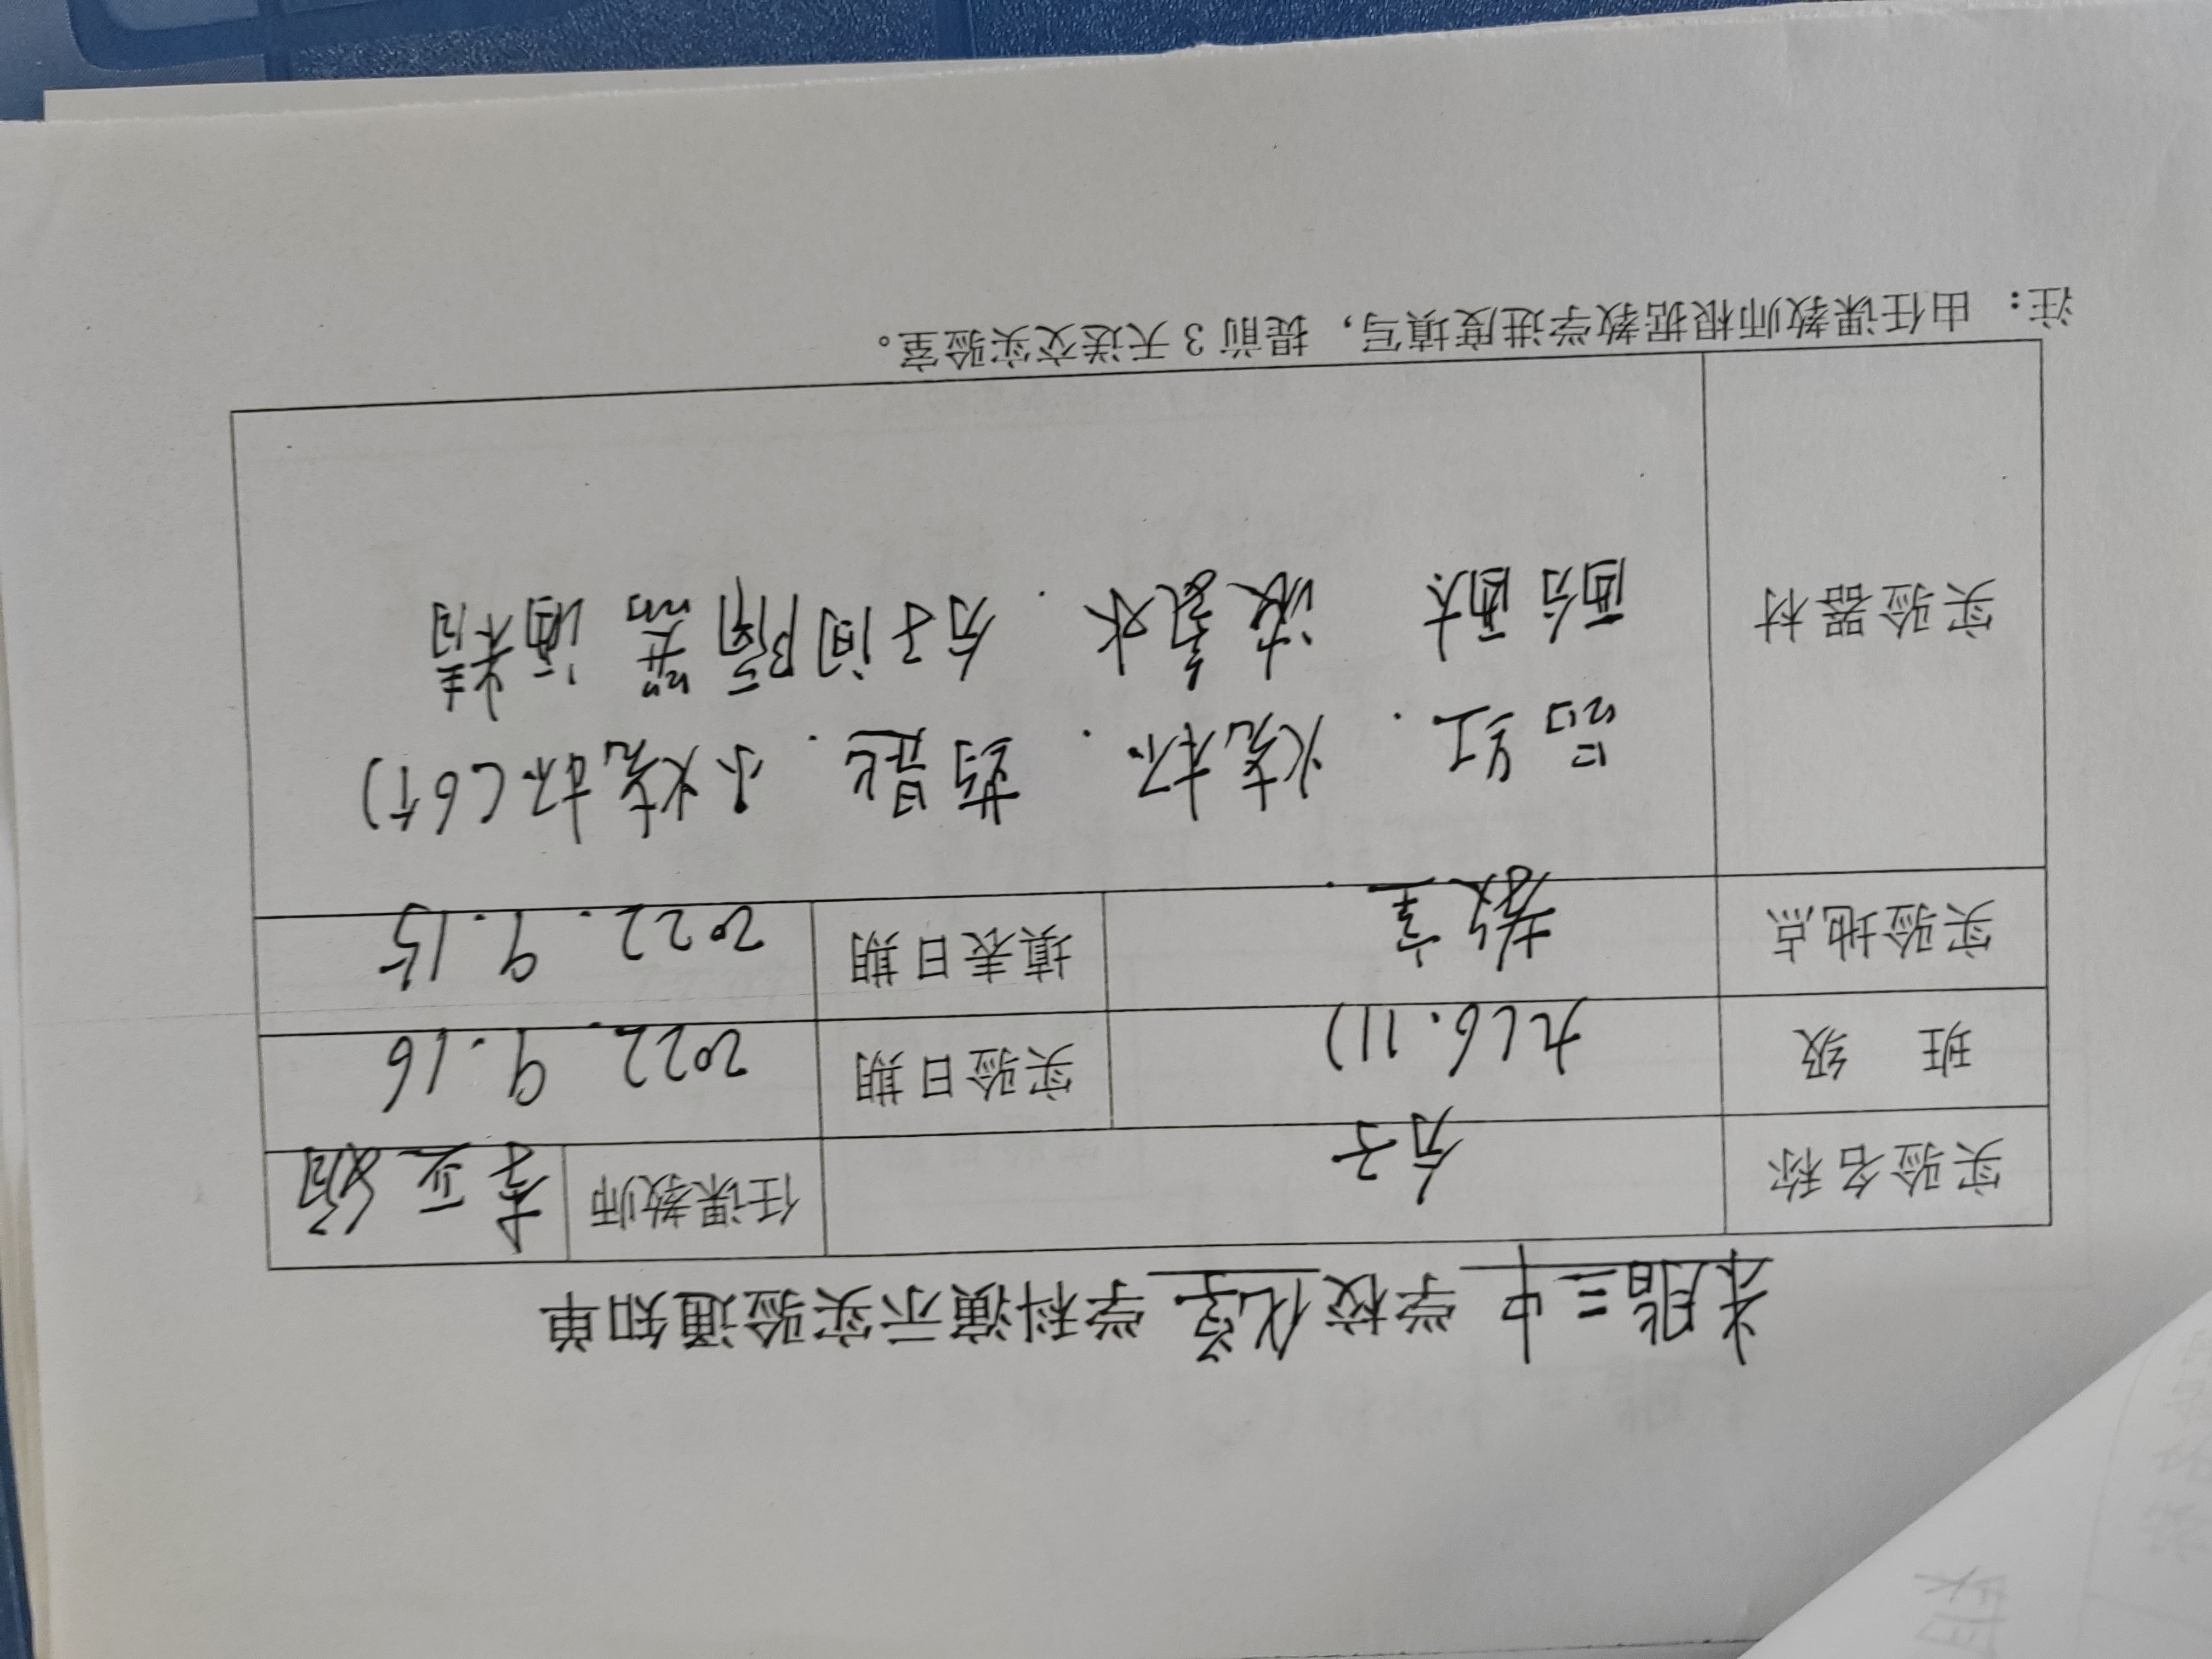 米脂三中 学校 化学 学科演示实验通知单
实验名称 分子 任课教师
班 级 九(6.11) 实验日期 2022. 9.16
实验地点 教室. 填表日期 2022. 9.15
实验器材 品红. 烧杯. 药匙. 小烧杯(6个)
酚酞 浓氨水. 分子间隔实验器 酒精
注: 由任课教师根据教学进度填写, 提前 3 天送交实验室。